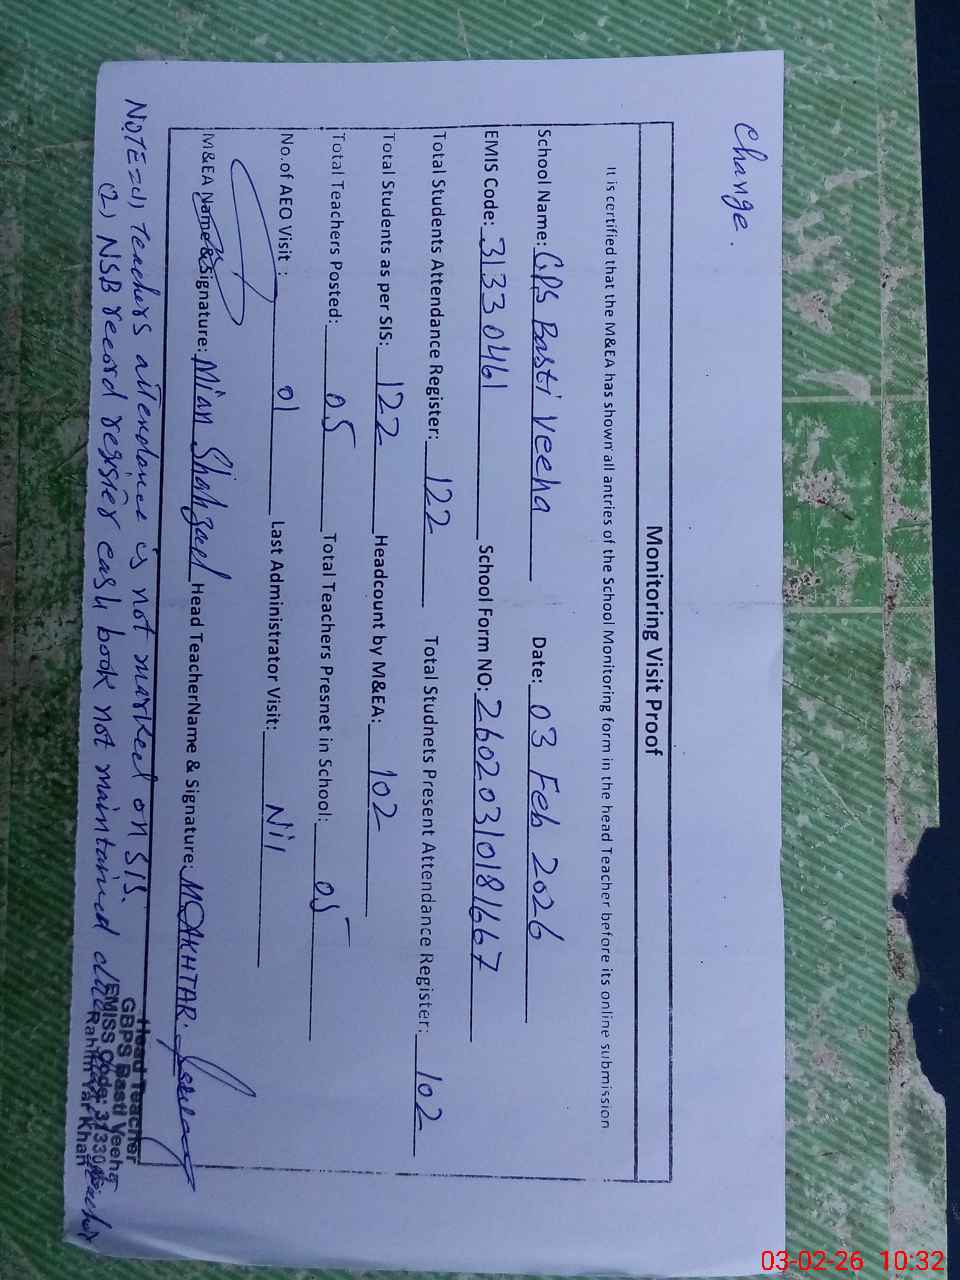 Change.
Monitoring Visit Proof
It is certified that the M&EA has shown all antries of the School Monitoring form in the head Teacher before its online submission
School Name: GPS Basti Veeha Date: 03 Feb 2026
EMIS Code: 31330461 School Form NO: 26020310181667
Total Students Attendance Register: 122 Total Studnets Present Attendance Register: 102
Total Students as per SIS: 122 Headcount by M&EA: 102
Total Teachers Posted: 05 Total Teachers Presnet in School: 05
No.of AEO Visit : 01 Last Administrator Visit: Nil
M&EA Name & Signature: Mian Shahzad Head TeacherName & Signature: M AKHTAR.
NOTE = (1) teachers attendance is not marked on SIS.
(2) NSB record register cash book not maintained
Head Teacher
GBPS Basti Veeha
EMISS Code: 31330461
Rahim Yar Khan
03-02-26 10:32